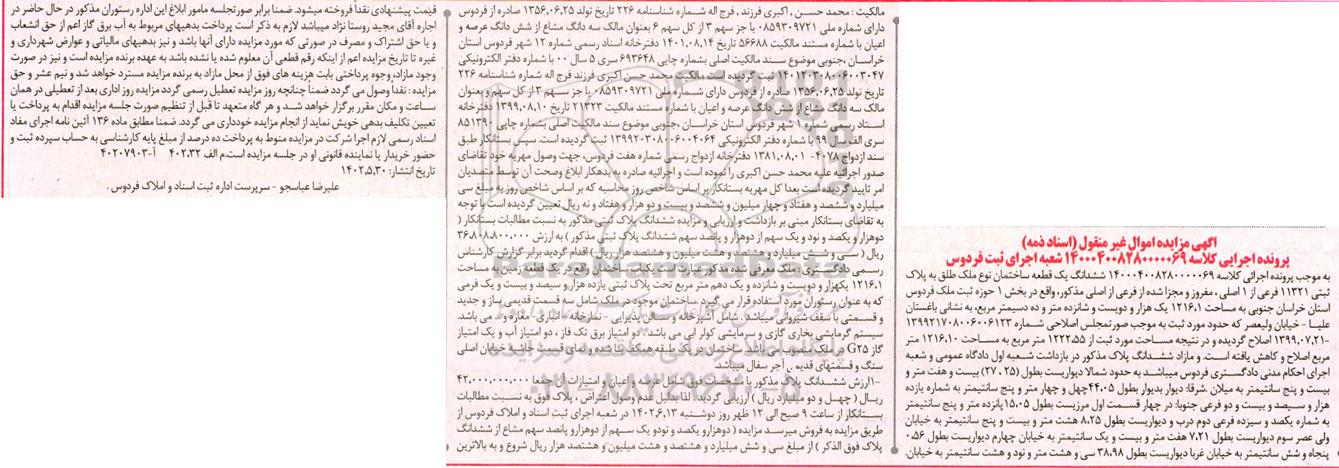 آگهی مزایده اموال غیر منقول (اسناد ذمه)
پرونده اجرایی کلاسه ۱۴۰۰۰۴۰۰۸۲۸۰۰۰۰۰۶۹ شعبه اجرای ثبت فردوس
به موجب پرونده اجرائی کلاسه ۱۴۰۰۰۴۰۰۸۲۸۰۰۰۰۰۶۹ ششدانگ یک قطعه ساختمان نوع ملک طلق به پلاک
ثبتی ۱۱۳۲۱ فرعی از ۱ اصلی، مفروز و مجزا شده از فرعی از اصلی مذکور، واقع در بخش ۱ حوزه ثبت ملک فردوس
استان خراسان جنوبی به مساحت ۱۲۱۶.۱ یک هزار و دویست و شانزده متر و ده دسیمتر مربع، به نشانی باغستان
علیا - خیابان ولیعصر که حدود مورد ثبت به موجب صورتمجلس اصلاحی شماره ۱۳۹۹۲۱۷۰۸۰۰۶۰۰۶۱۲۳
-۱۳۹۹.۰۷.۲۱ اصلاح گردیده و در نتیجه مساحت مورد ثبت از ۱۲۲۲.۵۵ متر مربع به مساحت ۱۲۱۶.۱۰ متر
مربع اصلاح و کاهش یافته است. و مازاد ششدانگ پلاک مذکور در بازداشت شعبه اول دادگاه عمومی و شعبه
اجرای احکام مدنی دادگستری فردوس میباشد به حدود شمالا دیواریست بطول (۲۷.۲۵) بیست و هفت متر و
بیست و پنج سانتیمتر به میلان .شرقا: دیوار بدیوار بطول ۴۴.۰۵چهل و چهار متر و پنج سانتیمتر به شماره یازده
هزار و سیصد و بیست و دو فرعی جنوبا: در چهار قسمت اول مرزیست بطول ۱۵.۰۵ پانزده متر و پنج سانتیمتر
به شماره یکصد و سیزده فرعی دوم درب و دیواریست بطول ۸.۲۵ هشت متر و بیست و پنج سانتیمتر به خیابان
ولی عصر سوم دیواریست بطول ۷.۲۱ هفت متر و بیست و یک سانتیمتر به خیابان چهارم دیواریست بطول ۰.۵۶
پنجاه و شش سانتیمتر به خیابان غربا دیواریست بطول ۳۸.۹۸ سی و هشت متر و نود و هشت سانتیمتر به خیابان.
مالکیت : محمد حسن , اکبری فرزند , فرج اله شماره شناسنامه ۲۲۶ تاریخ تولد ۱۳۵۶.۰۶.۲۵ صادره از فردوس
دارای شماره ملی ۰۸۵۹۳۰۹۷۲۱ با جز سهم ۳ از کل سهم ۶ بعنوان مالک سه دانگ مشاع از شش دانگ عرصه و
اعیان با شماره مستند مالکیت ۵۶۶۸۸ تاریخ ۱۴۰۱.۰۸.۱۴ دفترخانه اسناد رسمی شماره ۱۲ شهر فردوس استان
خراسان ,جنوبی موضوع سند مالکیت اصلی بشماره چاپی ۶۹۳۶۴۸ سری ۵ سال ۰۰ با شماره دفتر الکترونیکی
۱۴۰۱۲۰۳۰۸۰۰۶۰۰۳۰۴۷ ثبت گردیده است. مالکیت محمد حسن اکبری فرزند فرج اله شماره شناسنامه ۲۲۶
تاریخ تولد ۱۳۵۶.۰۶.۲۵ صادره از فردوس دارای شماره ملی ۰۸۵۹۳۰۹۷۲۱ با جز سهم ۳ از کل سهم و بعنوان
مالک سه دانگ مشاع از شش دانگ عرصه و اعیان با شماره مستند مالکیت ۲۱۳۲۳ تاریخ ۱۳۹۹.۰۸.۱۰ دفترخانه
اسناد رسمی شماره ۱ شهر فردوس استان خراسان ,جنوبی موضوع سند مالکیت اصلی بشماره چاپی ۸۵۱۳۹۰
سری الف سال ۹۹ با شماره دفتر الکترونیکی ۱۳۹۹۲۰۳۰۸۰۰۶۰۰۴۰۶۴ ثبت گردیده است. سپس بستانکار طبق
سند ازدواج ۴۰۷۸- ۱۳۸۱.۰۸.۰۱ دفترخانه ازدواج رسمی شماره هفت فردوس، جهت وصول مهریه خود تقاضای
صدور اجرائیه علیه محمد حسن اکبری را نموده است و اجرائیه صادره به بدهکار ابلاغ وصحت آن توسط متصدیان
امر تایید گردیده است بعدا کل مهریه بستانکار بر اساس شاخص روز محاسبه که بر اساس شاخص روز به مبلغ سی
میلیارد و ششصد و هفتاد و چهار میلیون و ششصد و بیست و دو هزار و هفتاد و نه ریال تعیین گردیده است با توجه
به تقاضای بستانکار مبنی بر بازداشت و ارزیابی و مزایده ششدانگ پلاک ثبتی مذکور به نسبت مطالبات بستانکار (
دوهزار و یکصد و نود و یک سهم از دوهزار و پانصد سهم ششدانگ پلاک ثبتی مذکور ) به ارزش ۳۶.۸۰۸.۸۰۰.۰۰۰
ریال ( سی و شش میلیارد و هشتصد و هشت میلیون و هشتصد هزار ریال ) اقدام گردید برابر گزارش کارشناس
رسمی دادگستری : ملک معرفی شده مذکور عبارت است یکباب ساختمان واقع در یک قطعه زمین به مساحت
۱۲۱۶.۱ یکهزار و دویست و شانزده و یک دهم متر مربع تحت پلاک ثبتی یازده هزارو سیصد و بیست و یک فرعی
که به عنوان رستوران مورد استفاده قرار می گیرد .ساختمان موجود در ملک شامل سه قسمت قدیمی ساز و جدید
و قسمتی با سقف شیروانی میباشد , شامل آشپزخانه و سالن پذیرایی - نمازخانه - انباری - مغازه و... می باشد.
سیستم گرمایشی بخاری گازی و سرمایشی کولر ابی می باشد . دو امتیاز برق تک فاز ، دو امتیاز آب و یک امتیاز
گاز G۲۵ در ملک منصوب می باشد . ساختمان در یک طبقه همکف بنا شده و نمای قسمت حاشیه خیابان اصلی
سنگ و قسمتهای قدیمی آجر سفال میباشد.
-۱ارزش ششدانگ پلاک مذکور با مشخصات فوق شامل عرصه و اعیان و امتیازات آن جمعا ۴۲.۰۰۰.۰۰۰.۰۰۰
ریال ( چهل و دو میلیارد ریال ) ارزیابی گردید. لذا بدلیل عدم وصول اعتراض , پلاک فوق به نسبت مطالبات
بستانکار از ساعت ۹ صبح الی ۱۲ ظهر روز دوشنبه ۱۴۰۲.۶.۱۳ در شعبه اجرای ثبت اسناد و املاک فردوس از
طریق مزایده به فروش میرسد مزایده ( دوهزارو یکصد و نودو یک سهم از دوهزارو پانصد سهم مشاع از ششدانگ
پلاک فوق الذکر ) از مبلغ سی و شش میلیارد و هشتصد و هشت میلیون و هشتصد هزار ریال شروع و به بالاترین
قیمت پیشنهادی نقدا فروخته میشود. ضمنا برابر صورتجلسه مامور ابلاغ این اداره رستوران مذکور در حال حاضر در
اجاره آقای مجید روستا نژاد میباشد لازم به ذکر است پرداخت بدهیهای مربوط به آب برق گاز اعم از حق انشعاب
و یا حق اشتراک و مصرف در صورتی که مورد مزایده دارای آنها باشد و نیز بدهیهای مالیاتی و عوارض شهرداری و
غیره تا تاریخ مزایده اعم از اینکه رقم قطعی آن معلوم شده یا نشده باشد به عهده برنده مزایده است و نیز در صورت
وجود مازاد، وجوه پرداختی بابت هزینه های فوق از محل مازاد به برنده مزایده مسترد خواهد شد و نیم عشر و حق
مزایده : نقدا وصول می گردد ضمنا چنانچه روز مزایده تعطیل رسمی گردد مزایده روز اداری بعد از تعطیلی در همان
ساعت و مکان مقرر برگزار خواهد شد و هر گاه متعهد تا قبل از تنظیم صورت جلسه مزایده اقدام به پرداخت یا
تعیین تکلیف بدهی خویش نماید از انجام مزایده خودداری می گردد. ضمنا مطابق ماده ۱۳۶ آئین نامه اجرای مفاد
اسناد رسمی لازم اجرا شرکت در مزایده منوط به پرداخت ده درصد از مبلغ پایه کارشناسی به حساب سپرده ثبت و
حضور خریدار یا نماینده قانونی او در جلسه مزایده است.م الف ۴۰۲.۳۲ آ-۴۰۲۰۷۹۰۳
تاریخ انتشار: ۱۴۰۲.۵.۳۰
علیرضا عباسجو - سرپرست اداره ثبت اسناد و املاک فردوس .